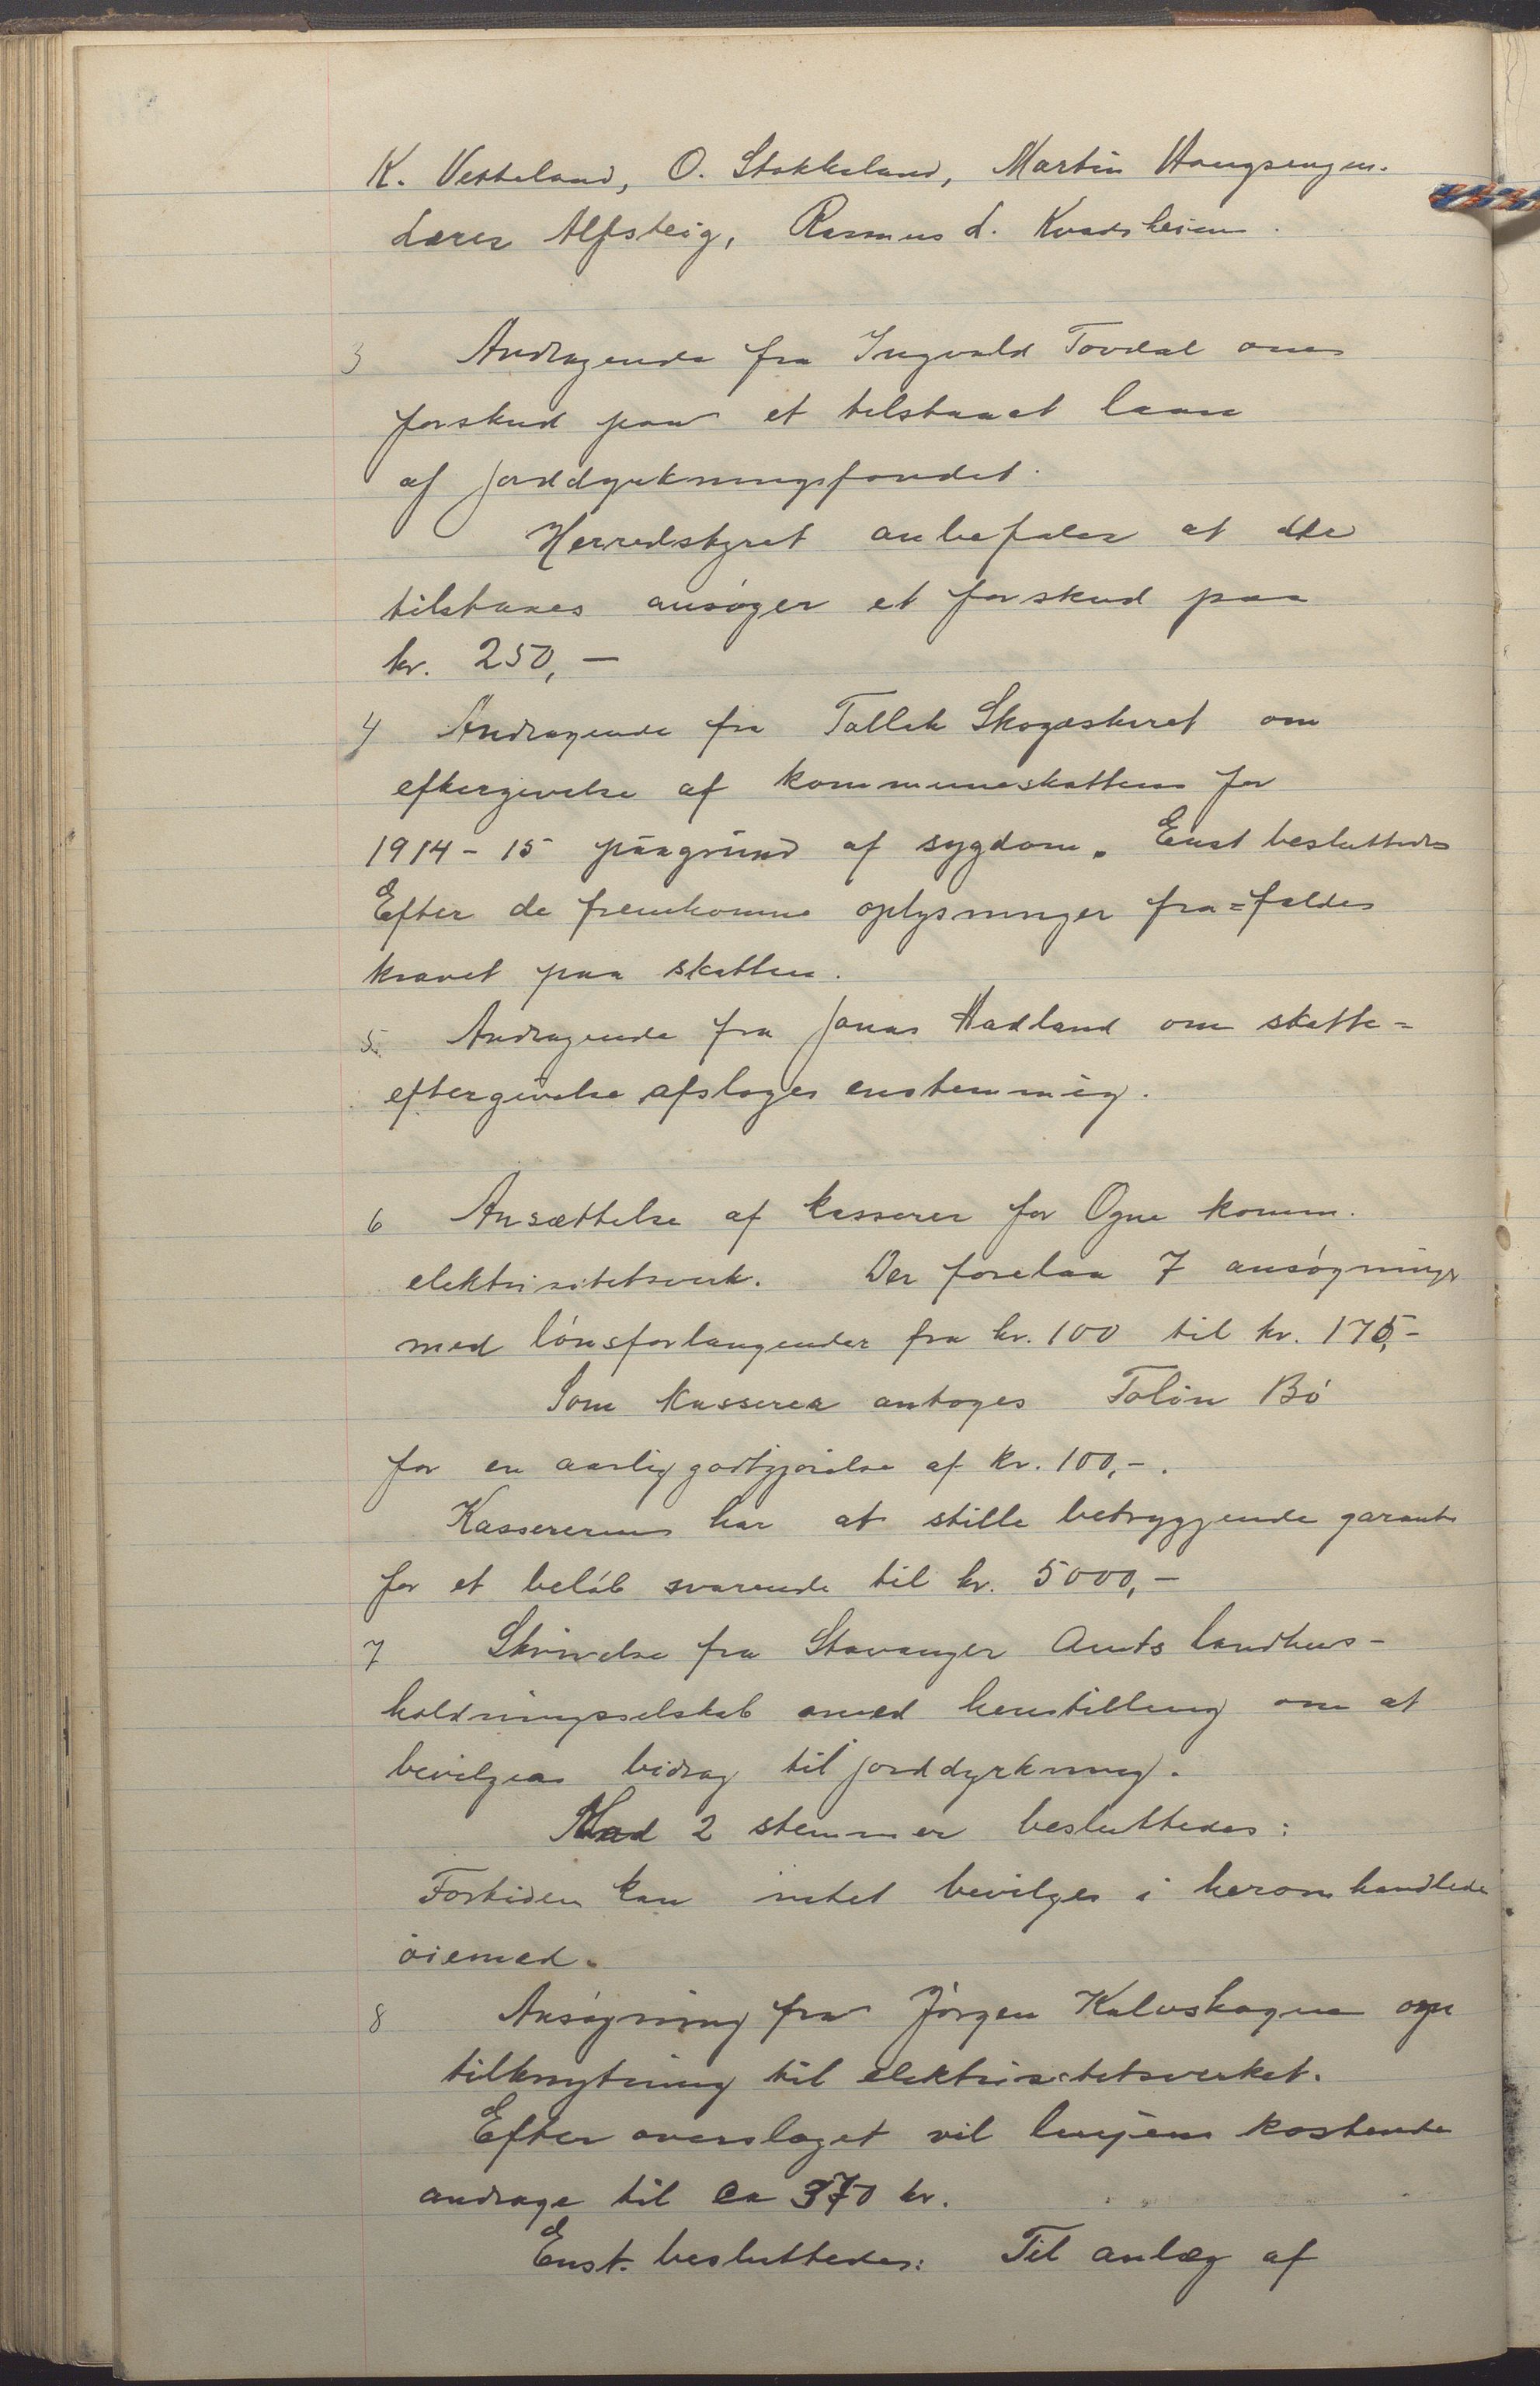 K. Vetteland, O. Stokkeland, Martin Haugsengen.
Lærer Alfsteig, Rasmus L. Kvadsheim.
3 Andragende fra Ingvald Tovdal om
forskud paa et tilstaaet laan
af jorddyrkningsfondet.
Herredstyret anbefaler at der
tilstaaes ansøger et forskud paa
kr. 250,—
4 Andragende fra Tallak Skogastøret om
eftergivelse af kommuneskatten for
1914-15 paagrund af sygdom. Enst besluttedes
Efter de fremkomne oplysninger fra=faldes
kravet paa skatten.
5. Andragende fra Jonas Hadland om skatte=
eftergivelse afsloges enstemmig.
6 Ansættelse af kasserer for Ogne komm.
elektrisitetsverk. Der forelaa 7 ansøgninger
med lønsforlangender fra kr. 100 til kr. 175,-
Som kasserer antoges Tolin Bö
for en aarlig godtgjørelse af kr. 100,-.
Kassereren har at stille betryggende garanti
for et beløb svarende til kr. 5000,—
7 Skrivelse fra Stavanger Amts landhus-
holdningsselskab med henstilling om at
bevilges bidrag til jorddyrkning.
Mod 2 stemmer besluttedes:
Fortiden kan intet bevilges i heromhandlede
øiemed.
8 Ansøgning fra Jörgen Kalvshagen om
tilknytning til elektrisitetsverket.
Efter overslaget vil linjens kostende
andrage til ca 370 kr.
Enst. besluttedes: Til anlæg af